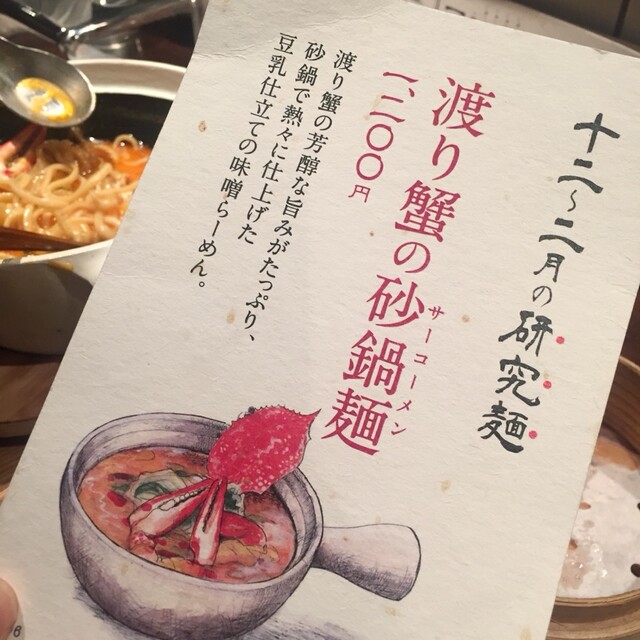 十二〜二月の研究麺
渡り蟹の砂鍋麺
サーコーメン
一、二〇〇円
渡り蟹の芳醇な旨みがたっぷり、
砂鍋で熱々に仕上げた
豆乳仕立ての味噌らーめん。